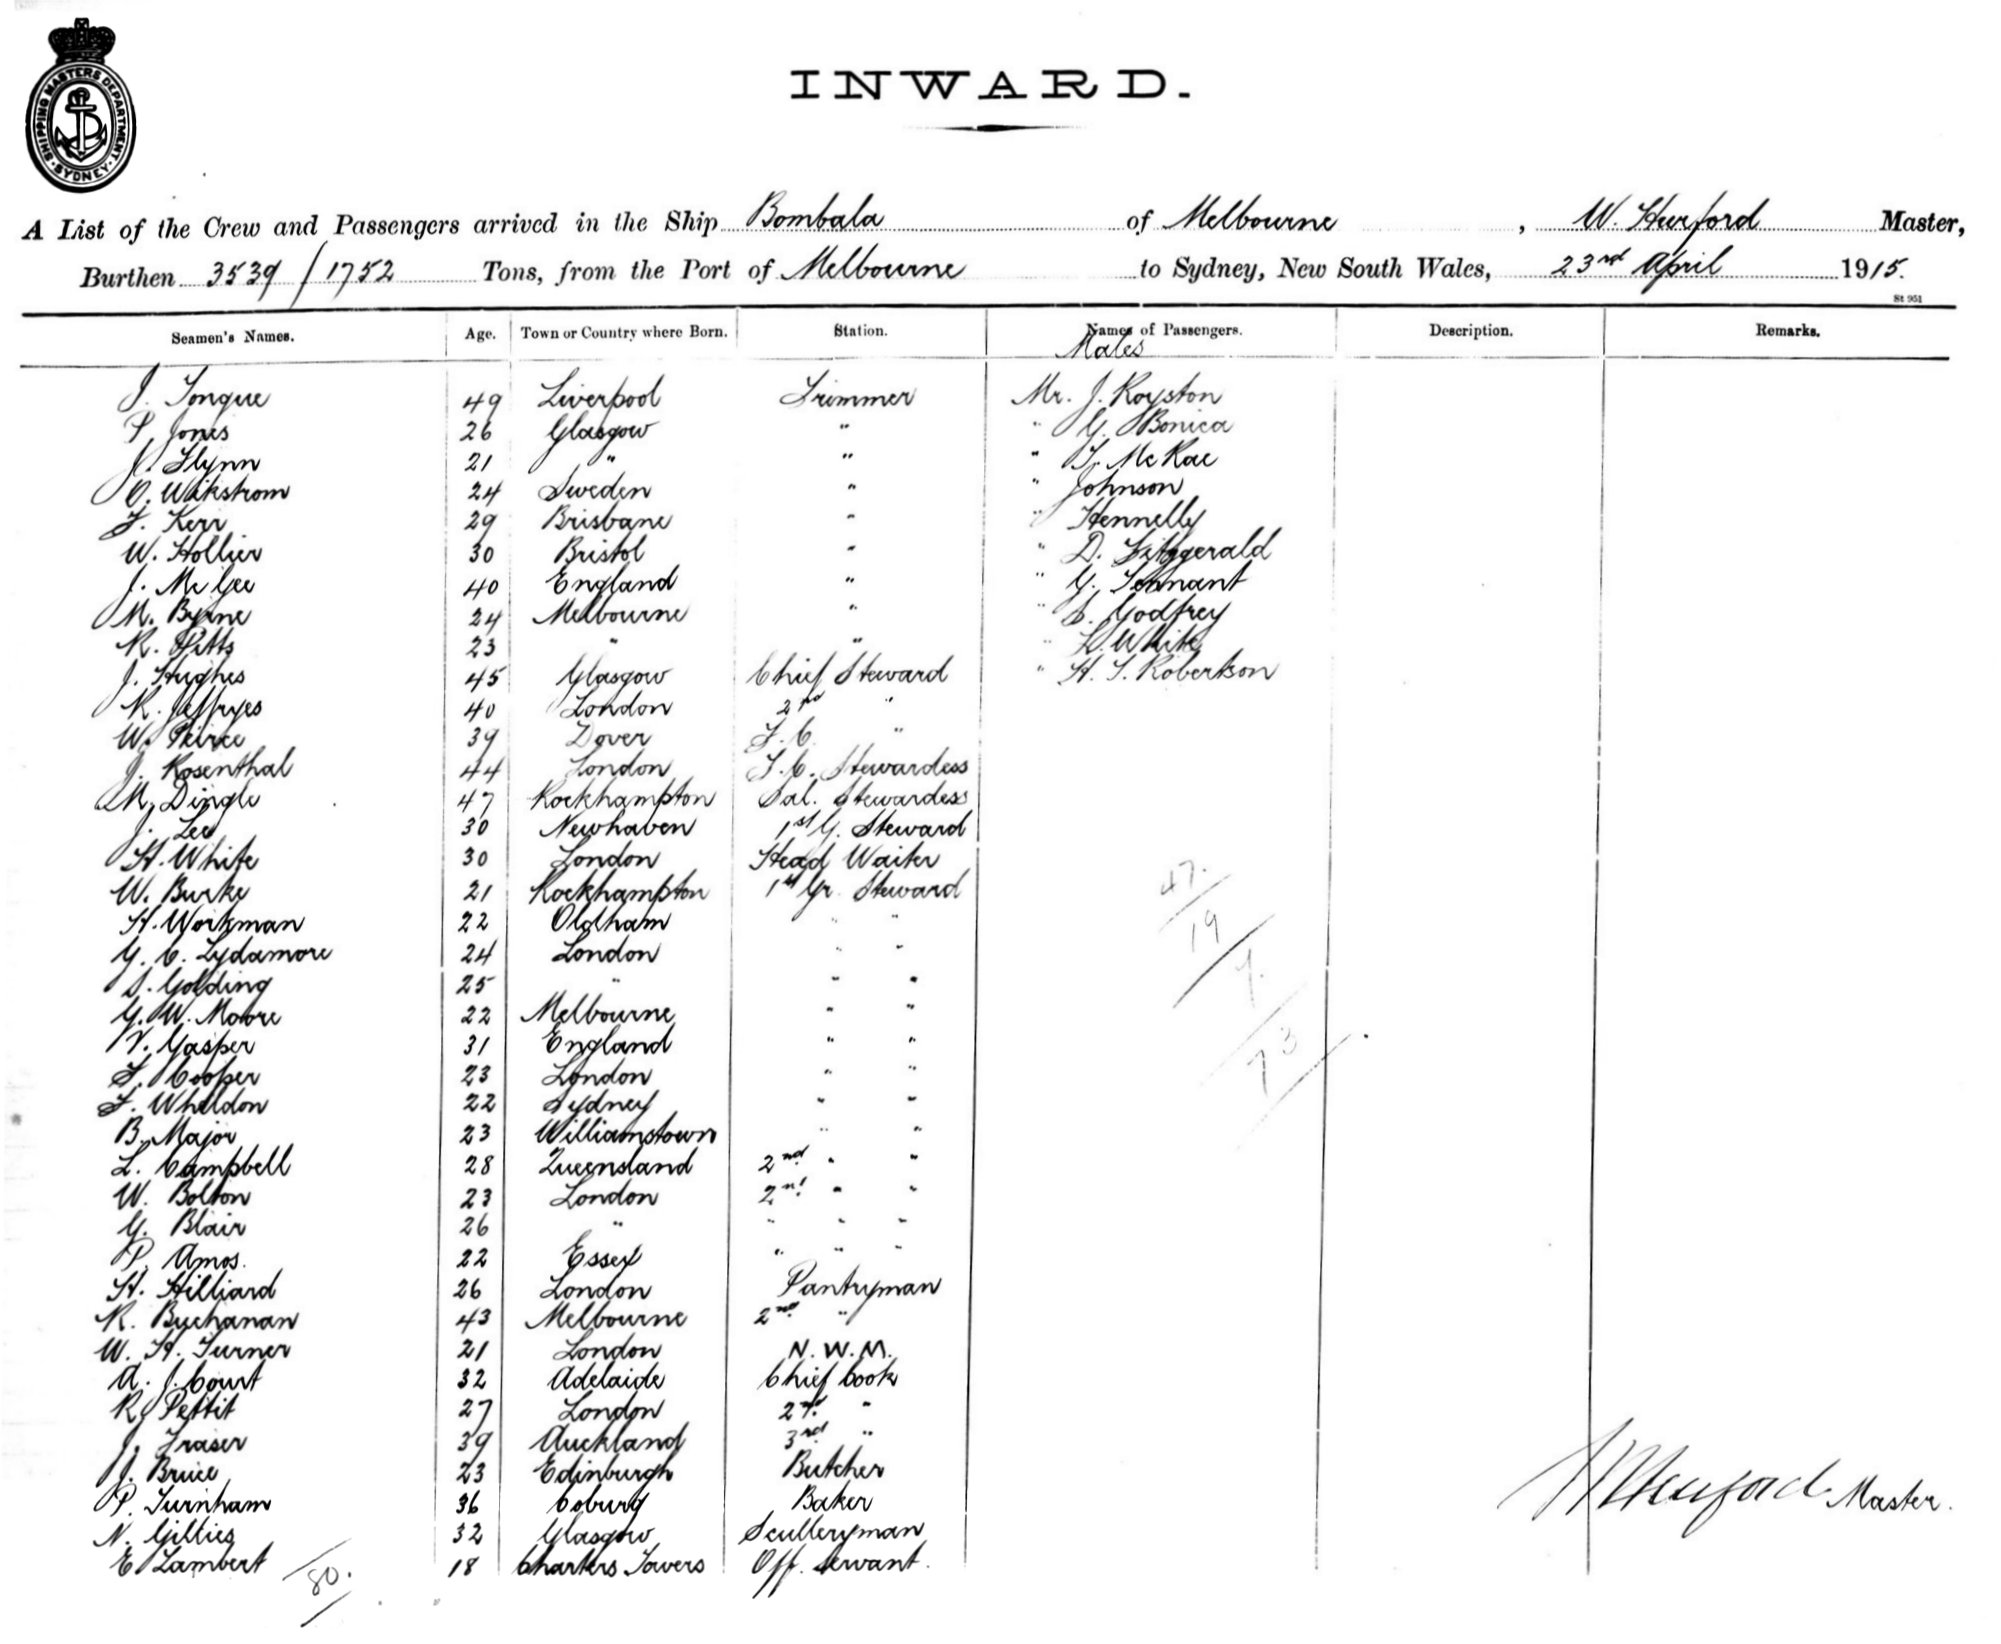 SHIPPING MASTERS DEPARTMENT. SYDNEY.
INWARD.
A List of the Crew and Passengers arrived in the Ship Bombala of Melbourne, W. Hurford Master,
Burthen 3539/1752 Tons, from the Port of Melbourne to Sydney, New South Wales, 23rd April 1915.
St 951
Seamen's Names. Age. Town or Country where Born. Station. Names of Passengers. Description. Remarks.
Males
J. Tongue 49 Liverpool Trimmer Mr. J. Royston
P. Jones 26 Glasgow " " G. Bonica
J. Flynn 21 " " " T. McRae
O. Wikstrom 24 Sweden " " Johnson
F. Kerr 29 Brisbane " " Hennelly
W. Hollier 30 Bristol " " D. Fitzgerald
J. McGee 40 England " " G. Tennant
M. Byrne 24 Melbourne " " S. Godfrey
R. Pitts 23 " " " L. White
J. Hughes 45 Glasgow Chief Steward " H. T. Robertson
R. Jeffryes 40 London 2nd "
W. Peirce 39 Dover F.C. "
J. Rosenthal 44 London F.C. Stewardess
M. Dingle 47 Rockhampton Sal. Stewardess
J. Lee 30 Newhaven 1st G. Steward
H. White 30 London Head Waiter
W. Burke 21 Rockhampton 1st Gr. Steward
H. Workman 22 Oldham " "
G. C. Lydamore 24 London " "
S. Golding 25 " " "
G. W. Moore 22 Melbourne " "
V. Gasper 31 England " "
F. Cooper 23 London " "
F. Wheldon 22 Sydney " "
B. Major 23 Williamstown " "
L. Campbell 28 Queensland 2nd " "
W. Bolton 23 London 2nd " "
G. Blair 26 " " " "
P. Amos. 22 Essex " " "
H. Hilliard 26 London Pantryman
R. Buchanan 43 Melbourne 2nd "
W. H. Turner 21 London N.W.M.
A. J. Court 32 Adelaide Chief Cook
R. Pettit 27 London 2nd "
J. Fraser 39 Auckland 3rd "
J. Bruce 23 Edinburgh Butcher
P. Turnham 36 Coburg Baker
N. Gillies 32 Glasgow Sculleryman
E. Lambert 18 Charters Towers Off. Servant.
47.
19
7.
73
80.
W Hurford Master.